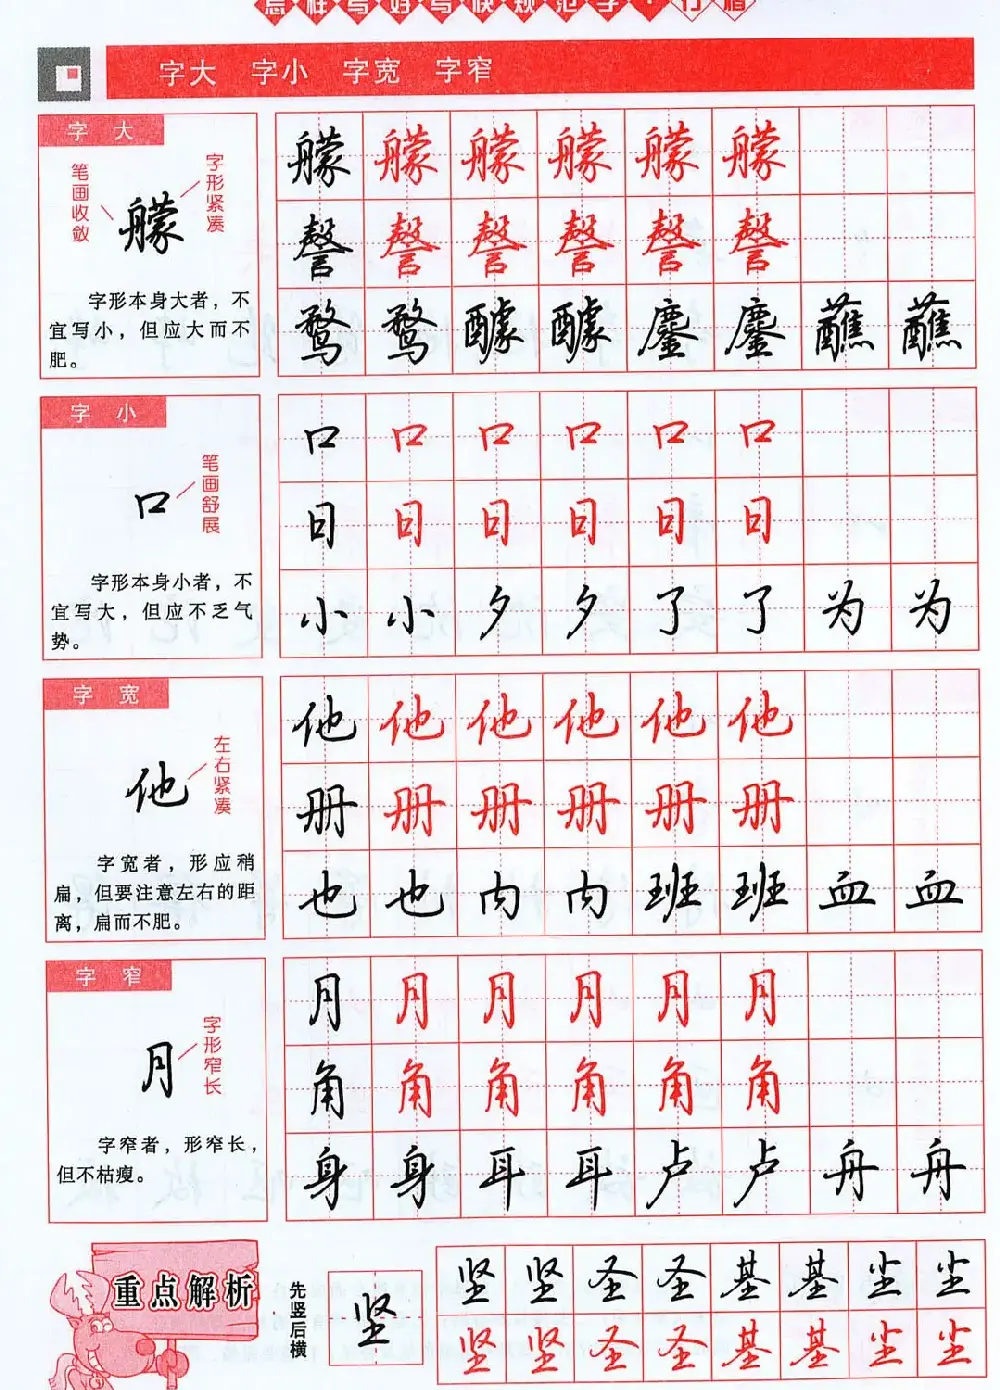 怎样写好写快规范字·行楷
字大 字小 字宽 字窄
字大
笔画收敛
艨
字形紧凑
字形本身大者，不
宜写小，但应大而不
肥。
艨艨艨艨艨艨
謦謦謦謦謦謦
骛骛醵醵鏖鏖蘸蘸
字小
口
笔画舒展
字形本身小者，不
宜写大，但应不乏气
势。
口口口口口口
日日日日日日
小小夕夕了了为为
字宽
他
左右紧凑
字宽者，形应稍
扁，但要注意左右的距
离，扁而不肥。
他他他他他他
册册册册册册
也也内内班班血血
字窄
月
字形窄长
字窄者，形窄长，
但不枯瘦。
月月月月月月
角角角角角角
身身耳耳卢卢舟舟
重点解析
先竖后横
坚
坚坚圣圣基基尘尘
坚坚圣圣基基尘尘